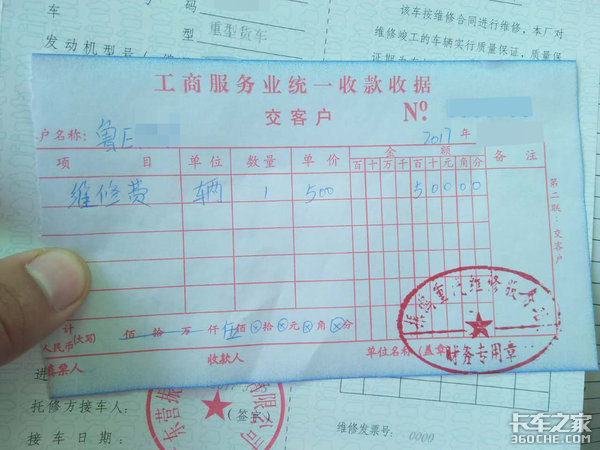 码
重型货车
发动机型号
该车按维修合同进行维修，本厂对
维修竣工的车辆实行质量保证，质量保
工商服务业统一收款收据
交客户 №
户名称: 鲁E
2017 年
项 目 单位 数量 单价 金 额 备 注
百 十 万 千 百 十 元 角 分
维修费 辆 1 500 5 0 0 0 0
第二联:交客户
计
人民币(大写) 佰 拾 万 仟 伍 佰 ⊗ 拾 ⊗ 元 ⊗ 角 ⊗ 分
票人 收款人 单位名称(盖章)
重汽维修服务
财务专用章
进
托修方接车人: (签字)
接车日期:
东营
有限公司
维修发票号: 0000
卡车之家
360CHE.COM